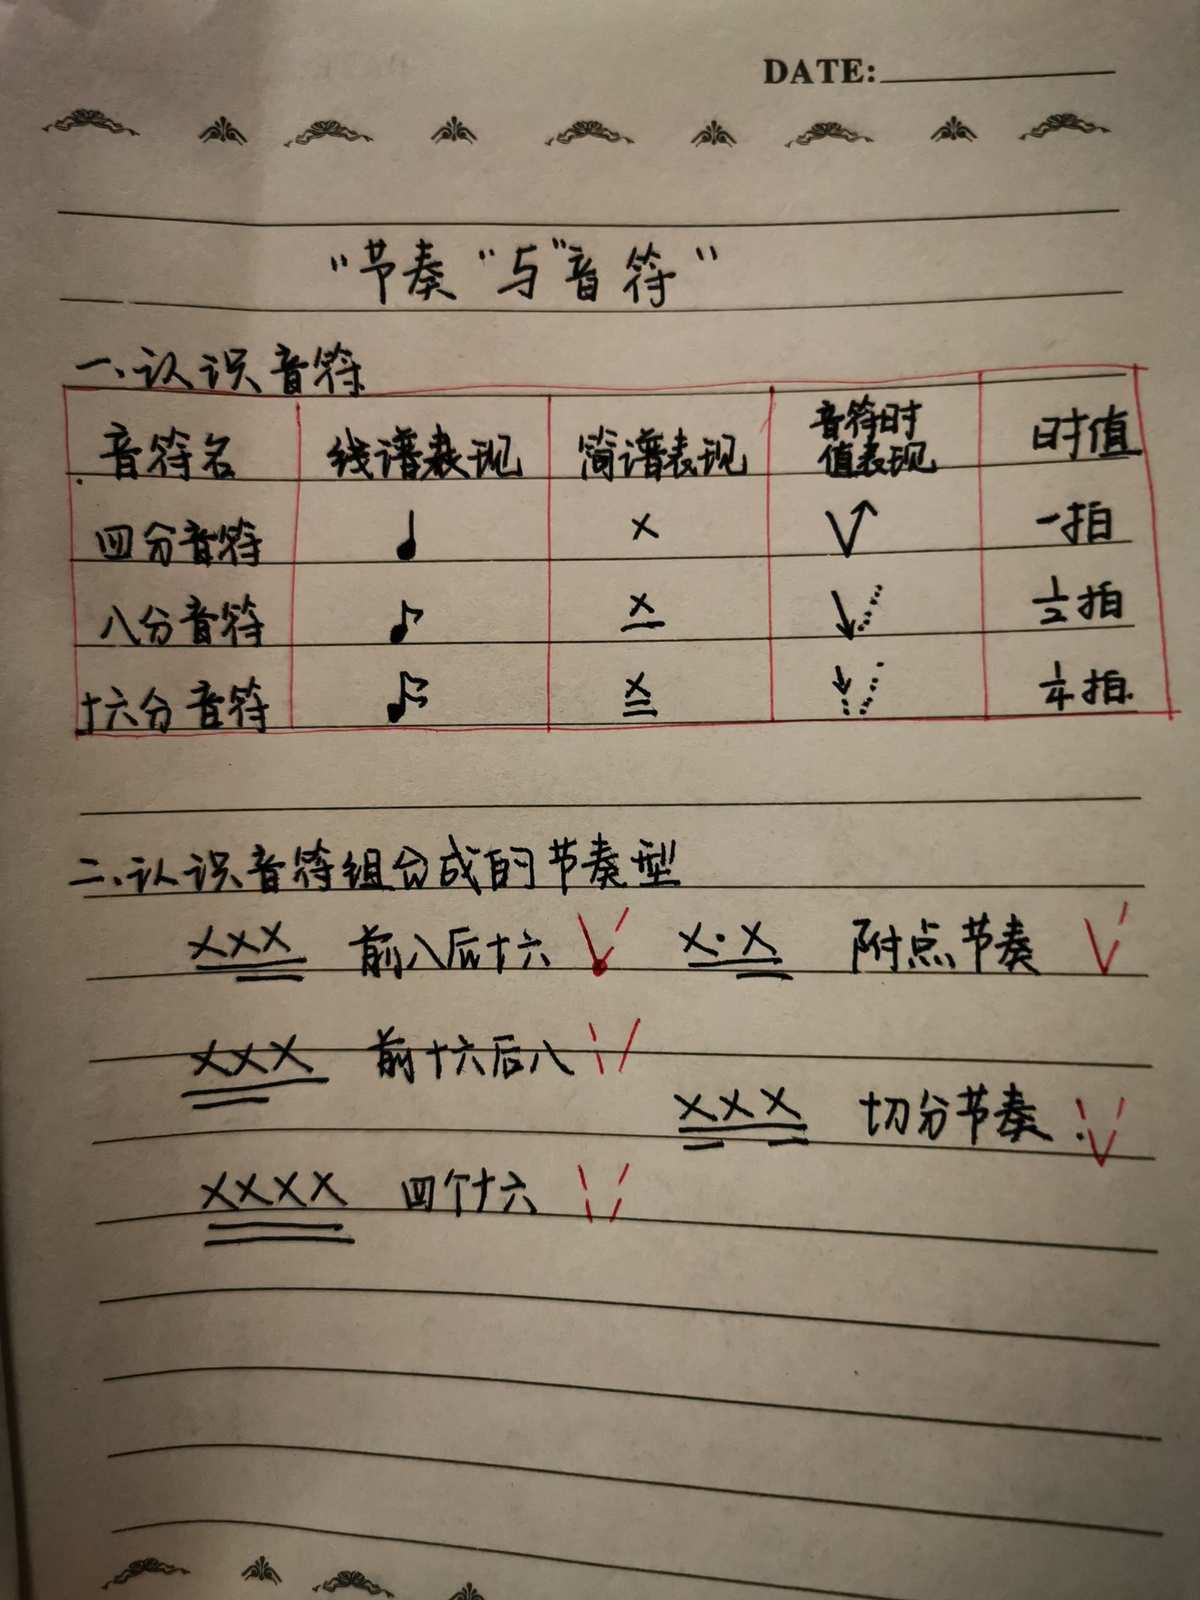 DATE:
“节奏“与”音符”
一、认识音符
音符名 线谱表现 简谱表现 音符时值表现 时值
四分音符 ♩ × 一拍
八分音符 ♪ × 1/2拍
十六分音符 × 1/4拍.
二、认识音符组合成的节奏型
××× 前八后十六 ×·× 附点节奏
××× 前十六后八
××× 切分节奏
×××× 四个十六